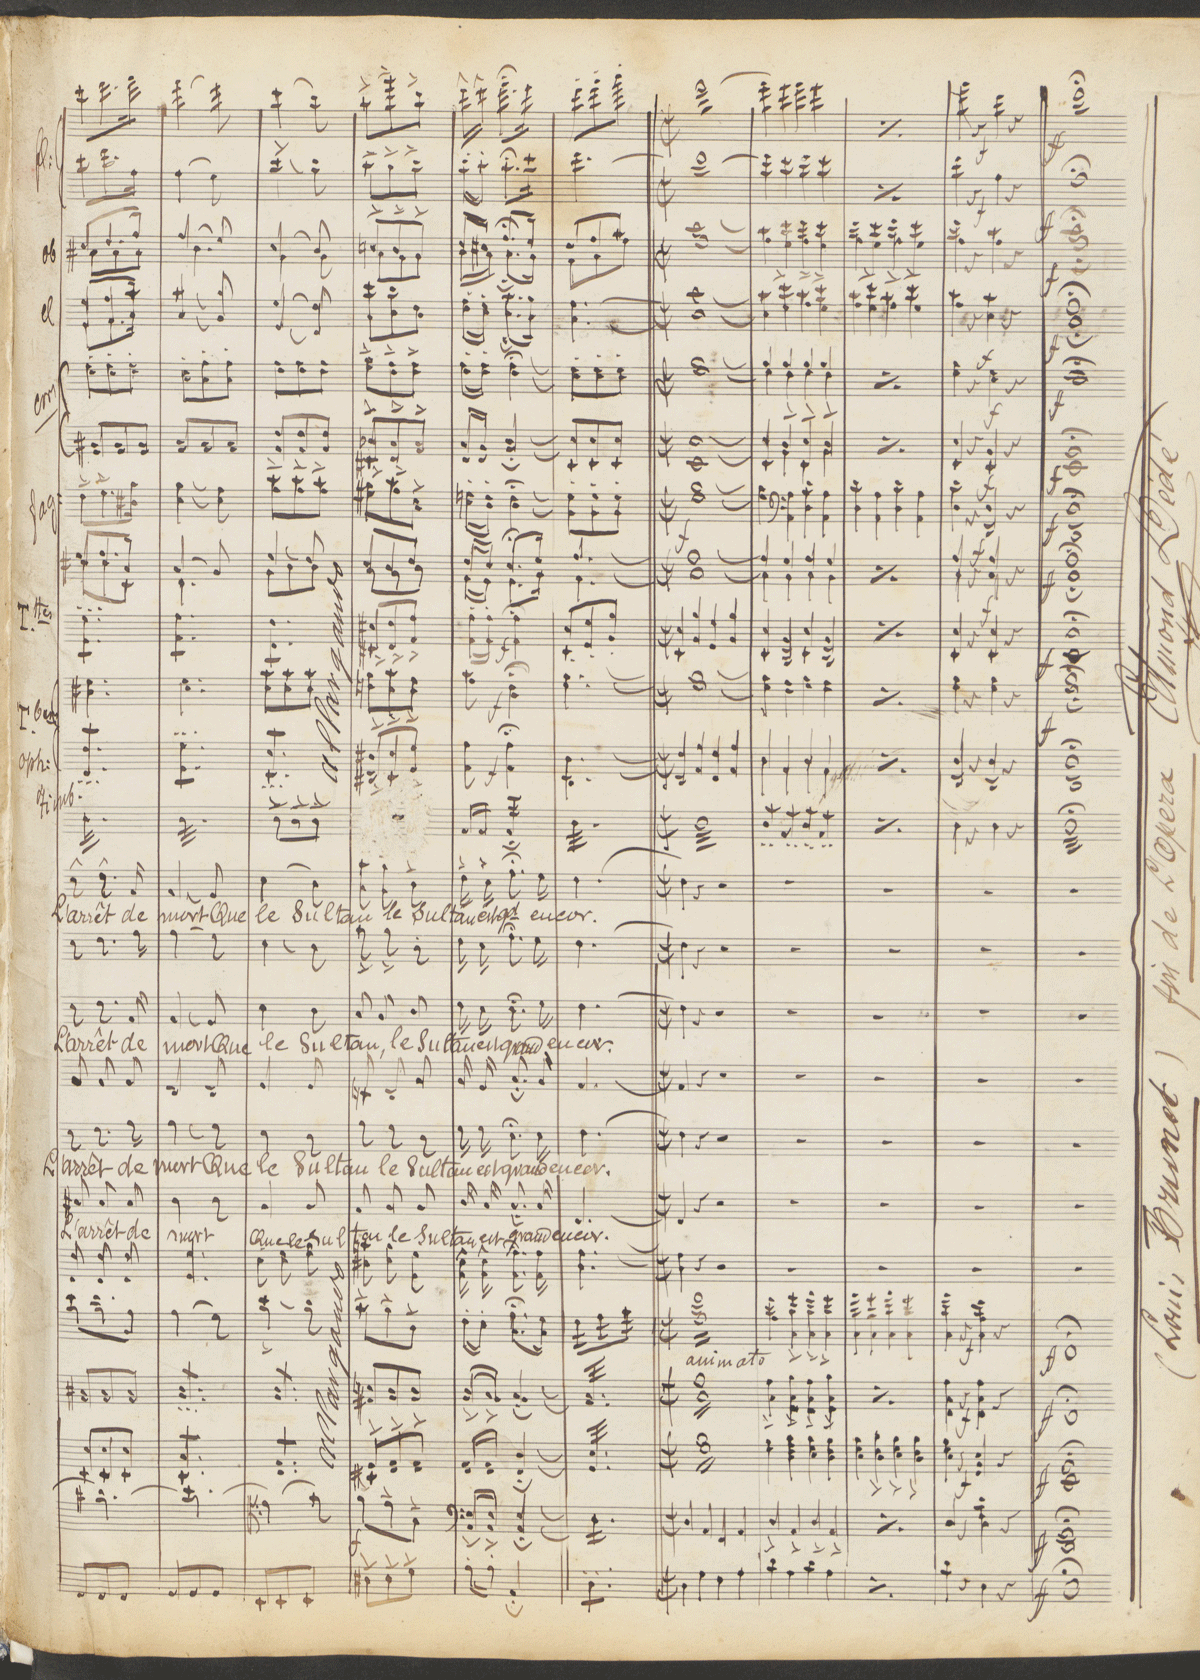 fl:
ob
cl
Crni
fag:
T.ttes
T.bes
Oph:
Timb:
allargando
L'arrêt de mort Que le Sultan le Sultan est gd encor.
L'arrêt de mort Que le Sultan, le Sultan est grand encor.
L'arrêt de mort Que le Sultan le Sultan est grand encor.
L'arrêt de mort Que le Sultan le Sultan est grand encor.
allargando
animato
(Louis Brunet) fin de L'opera (Edmond Dédé